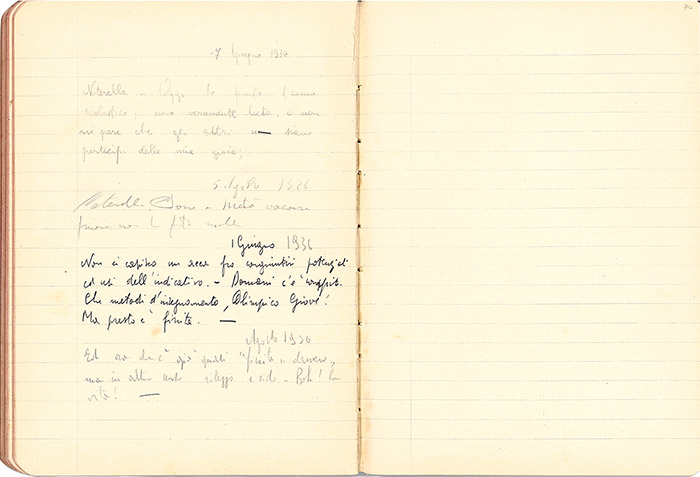 70
7 Giugno 1934
Noterella - Oggi ho finito l'anno
scolastico; sono veramente lieto, e non
mi pare che gli altri siano
partecipi della mia gioia;
5 Agosto 1934
Noterella. Sono a metà vacanze
1 Giugno 1936
Non ci capisco un acca fra congiuntivi potenziali
ed usi dell'indicativo. - Domani c'è compito.
Che metodi d'insegnamento, Olimpico Giove!
Ma presto è finita. —
Agosto 1936
Ed ora che è già quasi "finita davvero",
ma in altro modo rileggo e rido - Boh! la
vita! —